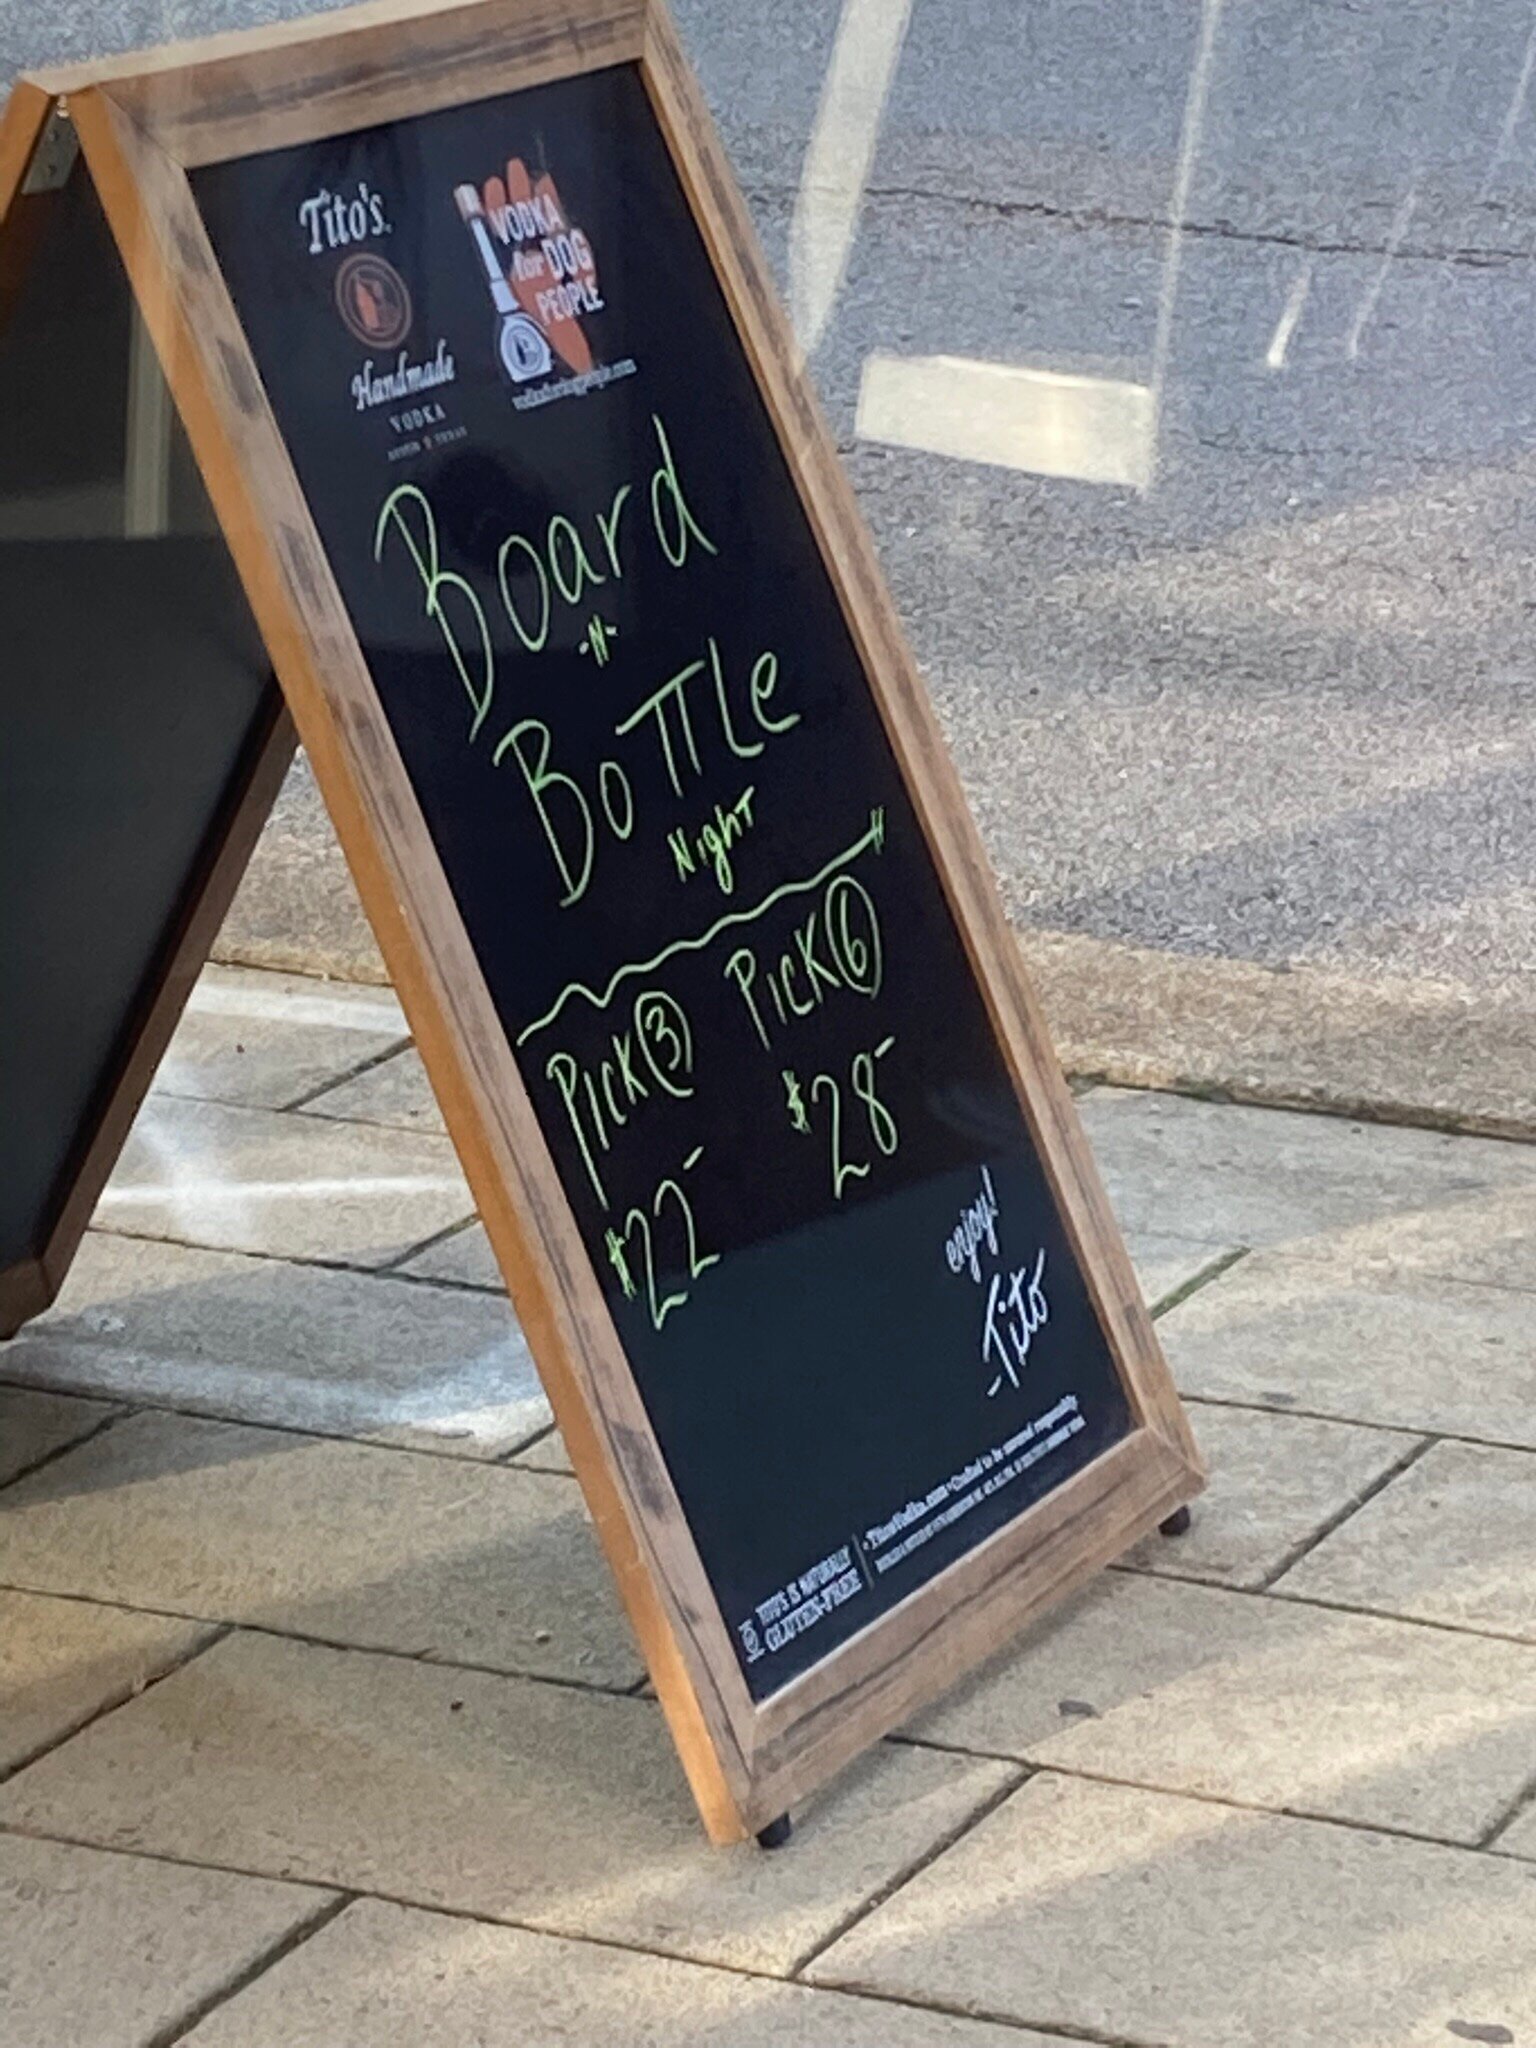 Tito's
Handmade
VODKA
AUSTIN TEXAS
VODKA
for DOG
PEOPLE
vodkafordogpeople.com
Board
-N-
Bottle
Night
Pick 3
$22-
Pick 6
$28-
enjoy!
-Tito
TITO'S IS NATURALLY
GLUTEN-FREE
TitosVodka.com • Crafted to be savored responsibly.